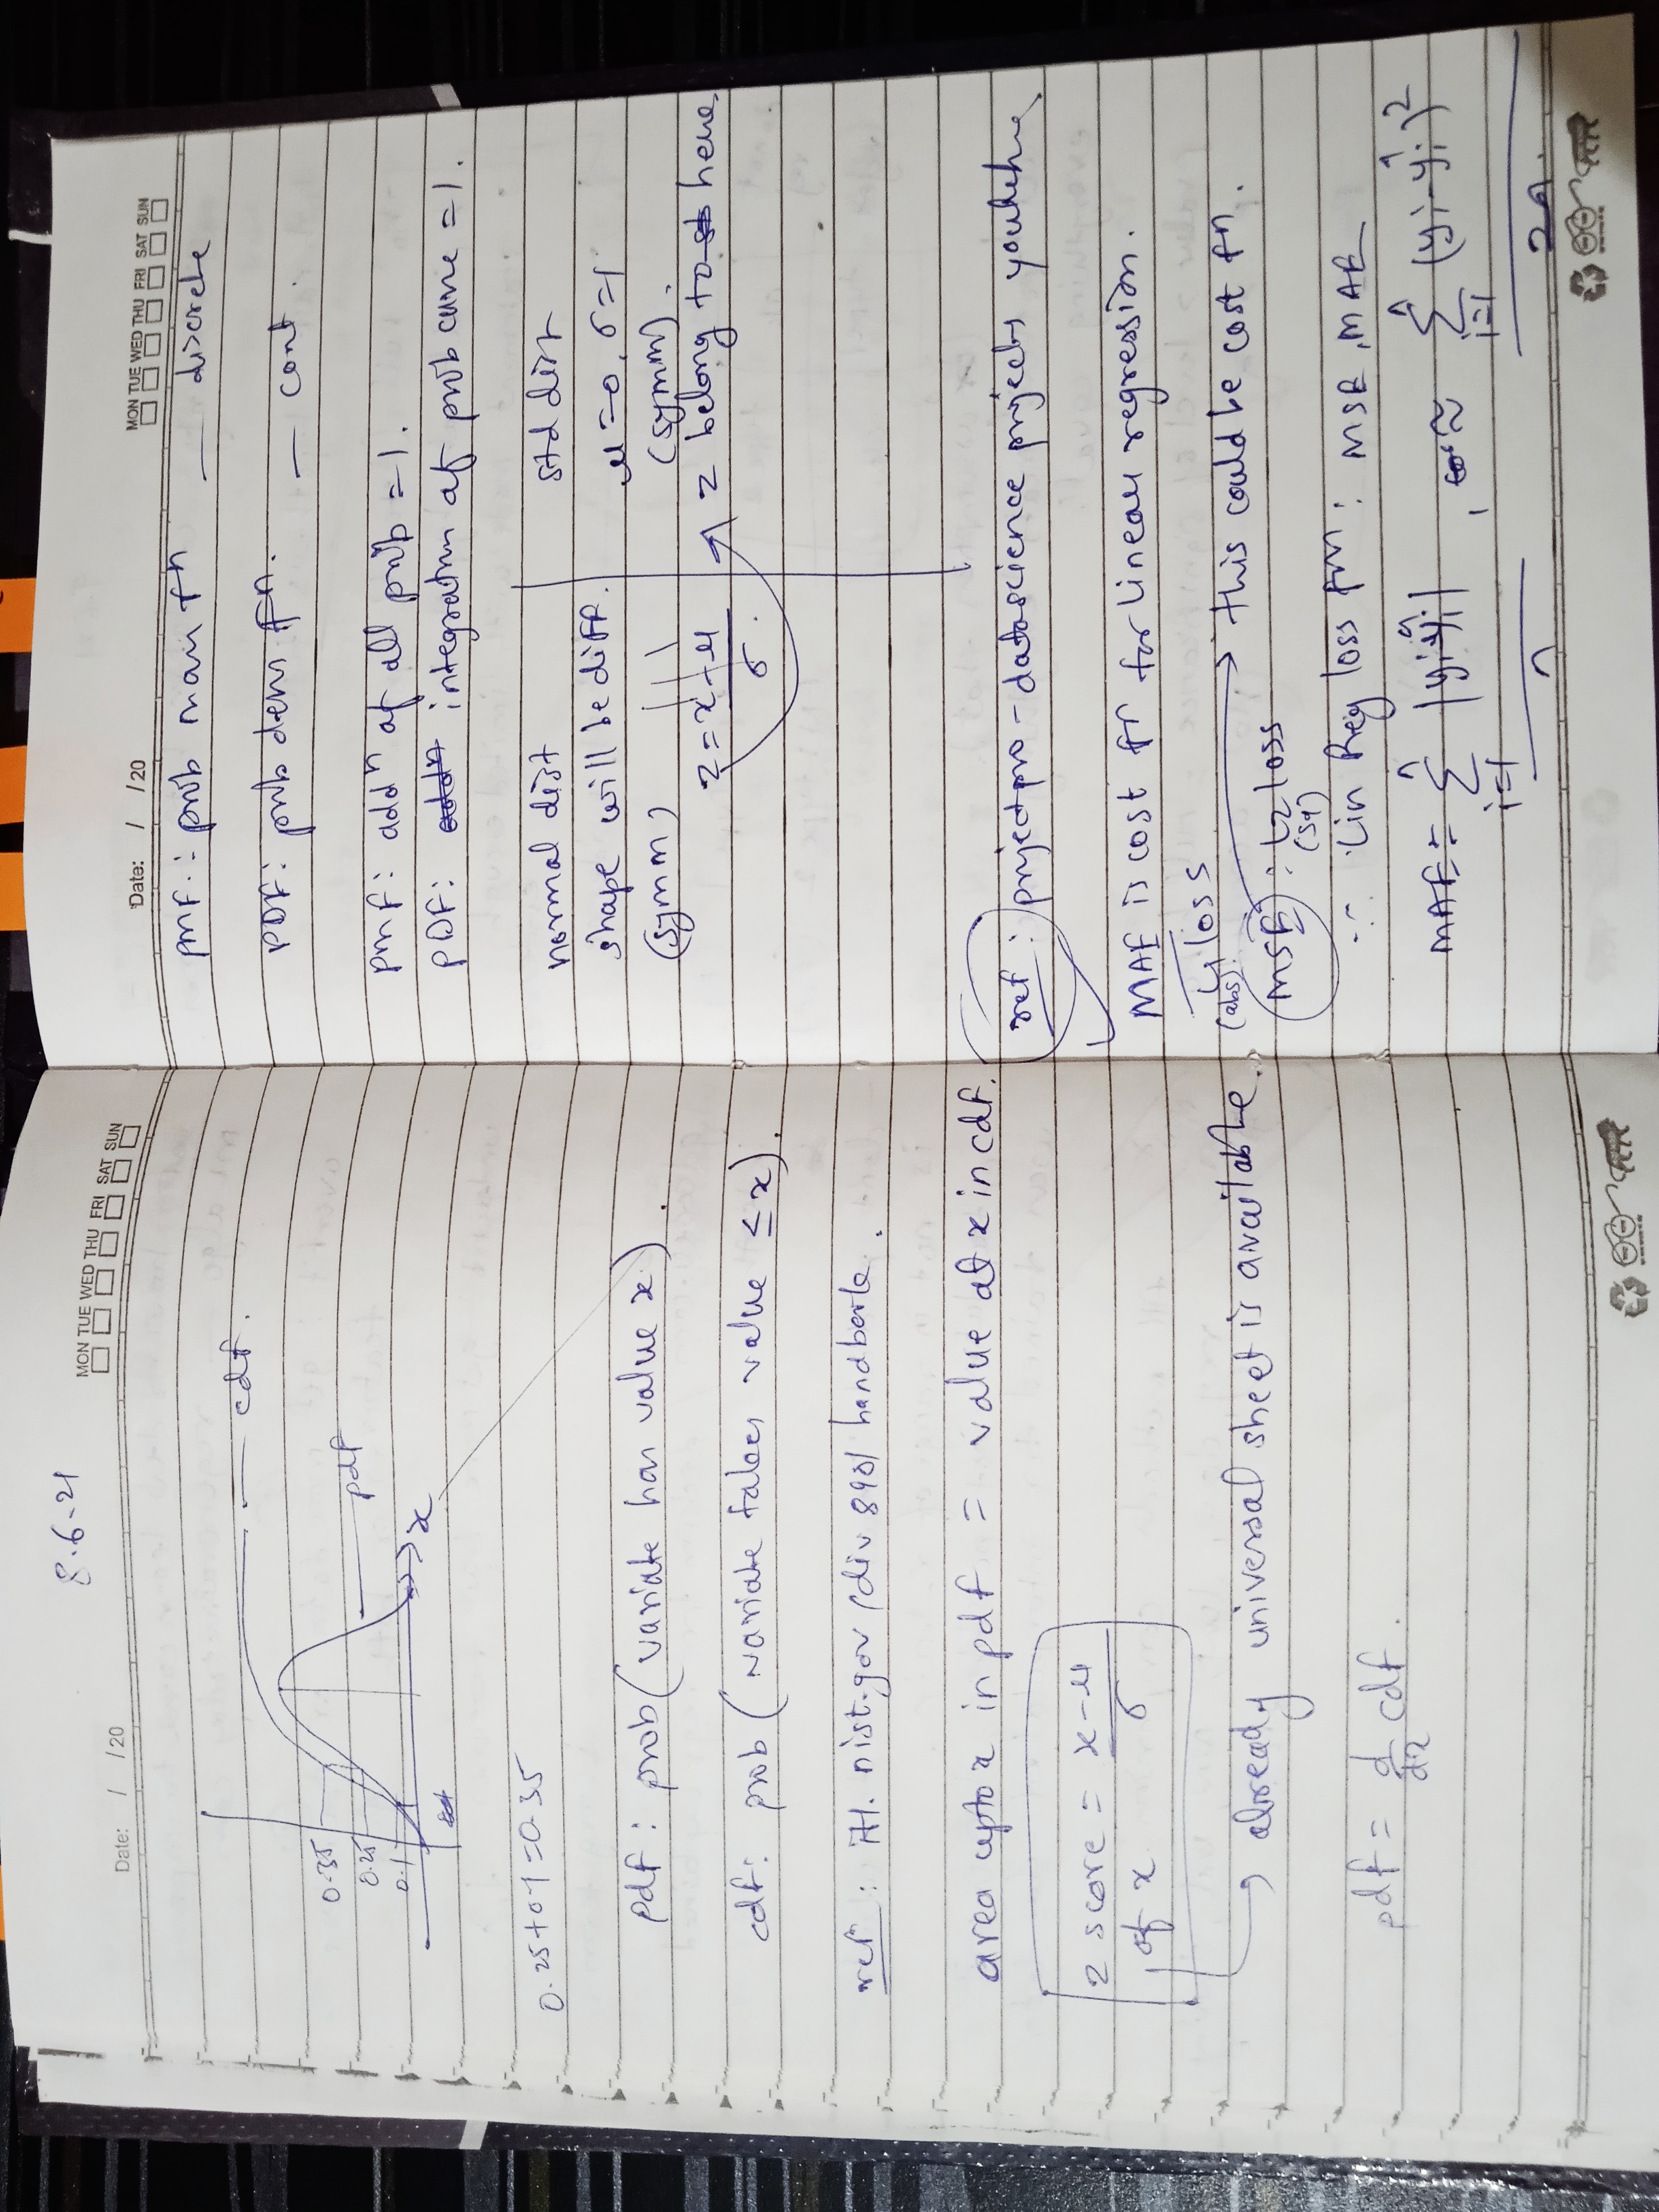 8.6-21
Date: / /20 MON TUE WED THU FRI SAT SUN
cdf.
0.35
0.25
0.1
pdf
x
0.25+0.1=0.35
pdf : prob (variate has value x).
cdf: prob (variate takes value ≤ x).
ref : itl. nist.gov /div 898/ handbook.
area upto x in pdf = value at x in cdf.
z score = x-μ
σ
of x
already universal sheet is available.
pdf = d/dx cdf.
Date: / /20 MON TUE WED THU FRI SAT SUN
pmf : prob mass fn — discrete
PDF: prob dens fn. — cont.
pmf: addn of all prob =1.
PDF: integratn of prob curve =1.
normal dist std dist
shape will be diff. μ=0, σ=1
(symm) (symm).
z = x+μ z belong to here
σ.
ref : projectpro - datascience projects youtube
MAE is cost fn for linear regression.
L1 loss
(abs).
MSE : L2 loss → this could be cost fn.
(sq)
∴ Lin Reg loss fn : MSE, MAE
MAE = n Σ i=1 |yi-ŷi| , n Σ i=1 (yi-ŷi)2
n 2n.